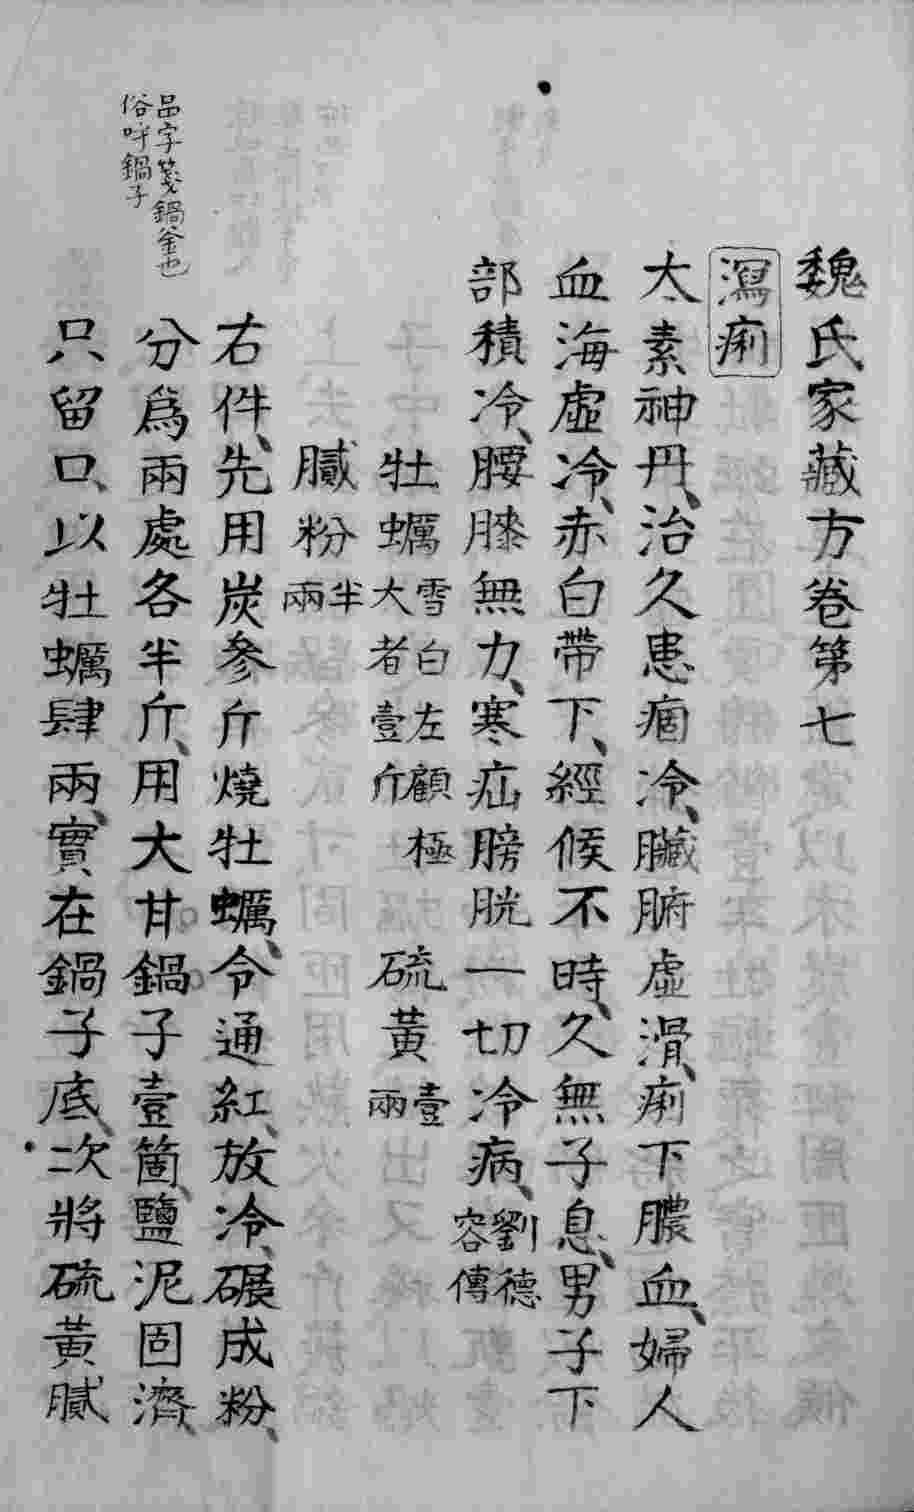 魏氏家藏方卷第七
瀉痢
太素神丹、治久患痼冷、臟腑虛滑、痢下膿血、婦人
血海虛冷、赤白帶下、經候不時、久無子息、男子下
部積冷、腰膝無力、寒疝膀胱一切冷病、劉德容傳
牡蠣雪白左顧極大者壹斤 硫黃壹兩
膩粉半兩
右件、先用炭參斤燒牡蠣、令通紅、放冷、碾成粉、
分爲兩處各半斤、用大甘鍋子壹箇、鹽泥固濟、
只留口、以牡蠣肆兩、實在鍋子底、次將硫黃膩
品字箋鍋釜也
俗呼鍋子